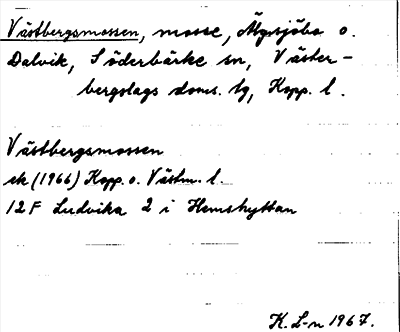 Västbergsmossen, mosse, Älgsjöbo o.
Dalvik, Söderbärke sn, Väster-
bergslags doms. tg, Kopp. l.
Västbergsmossen
ek (1966) Kopp. o. Västm. l.
12 F Ludvika 2 i Hemshyttan
K. L-n 1967.